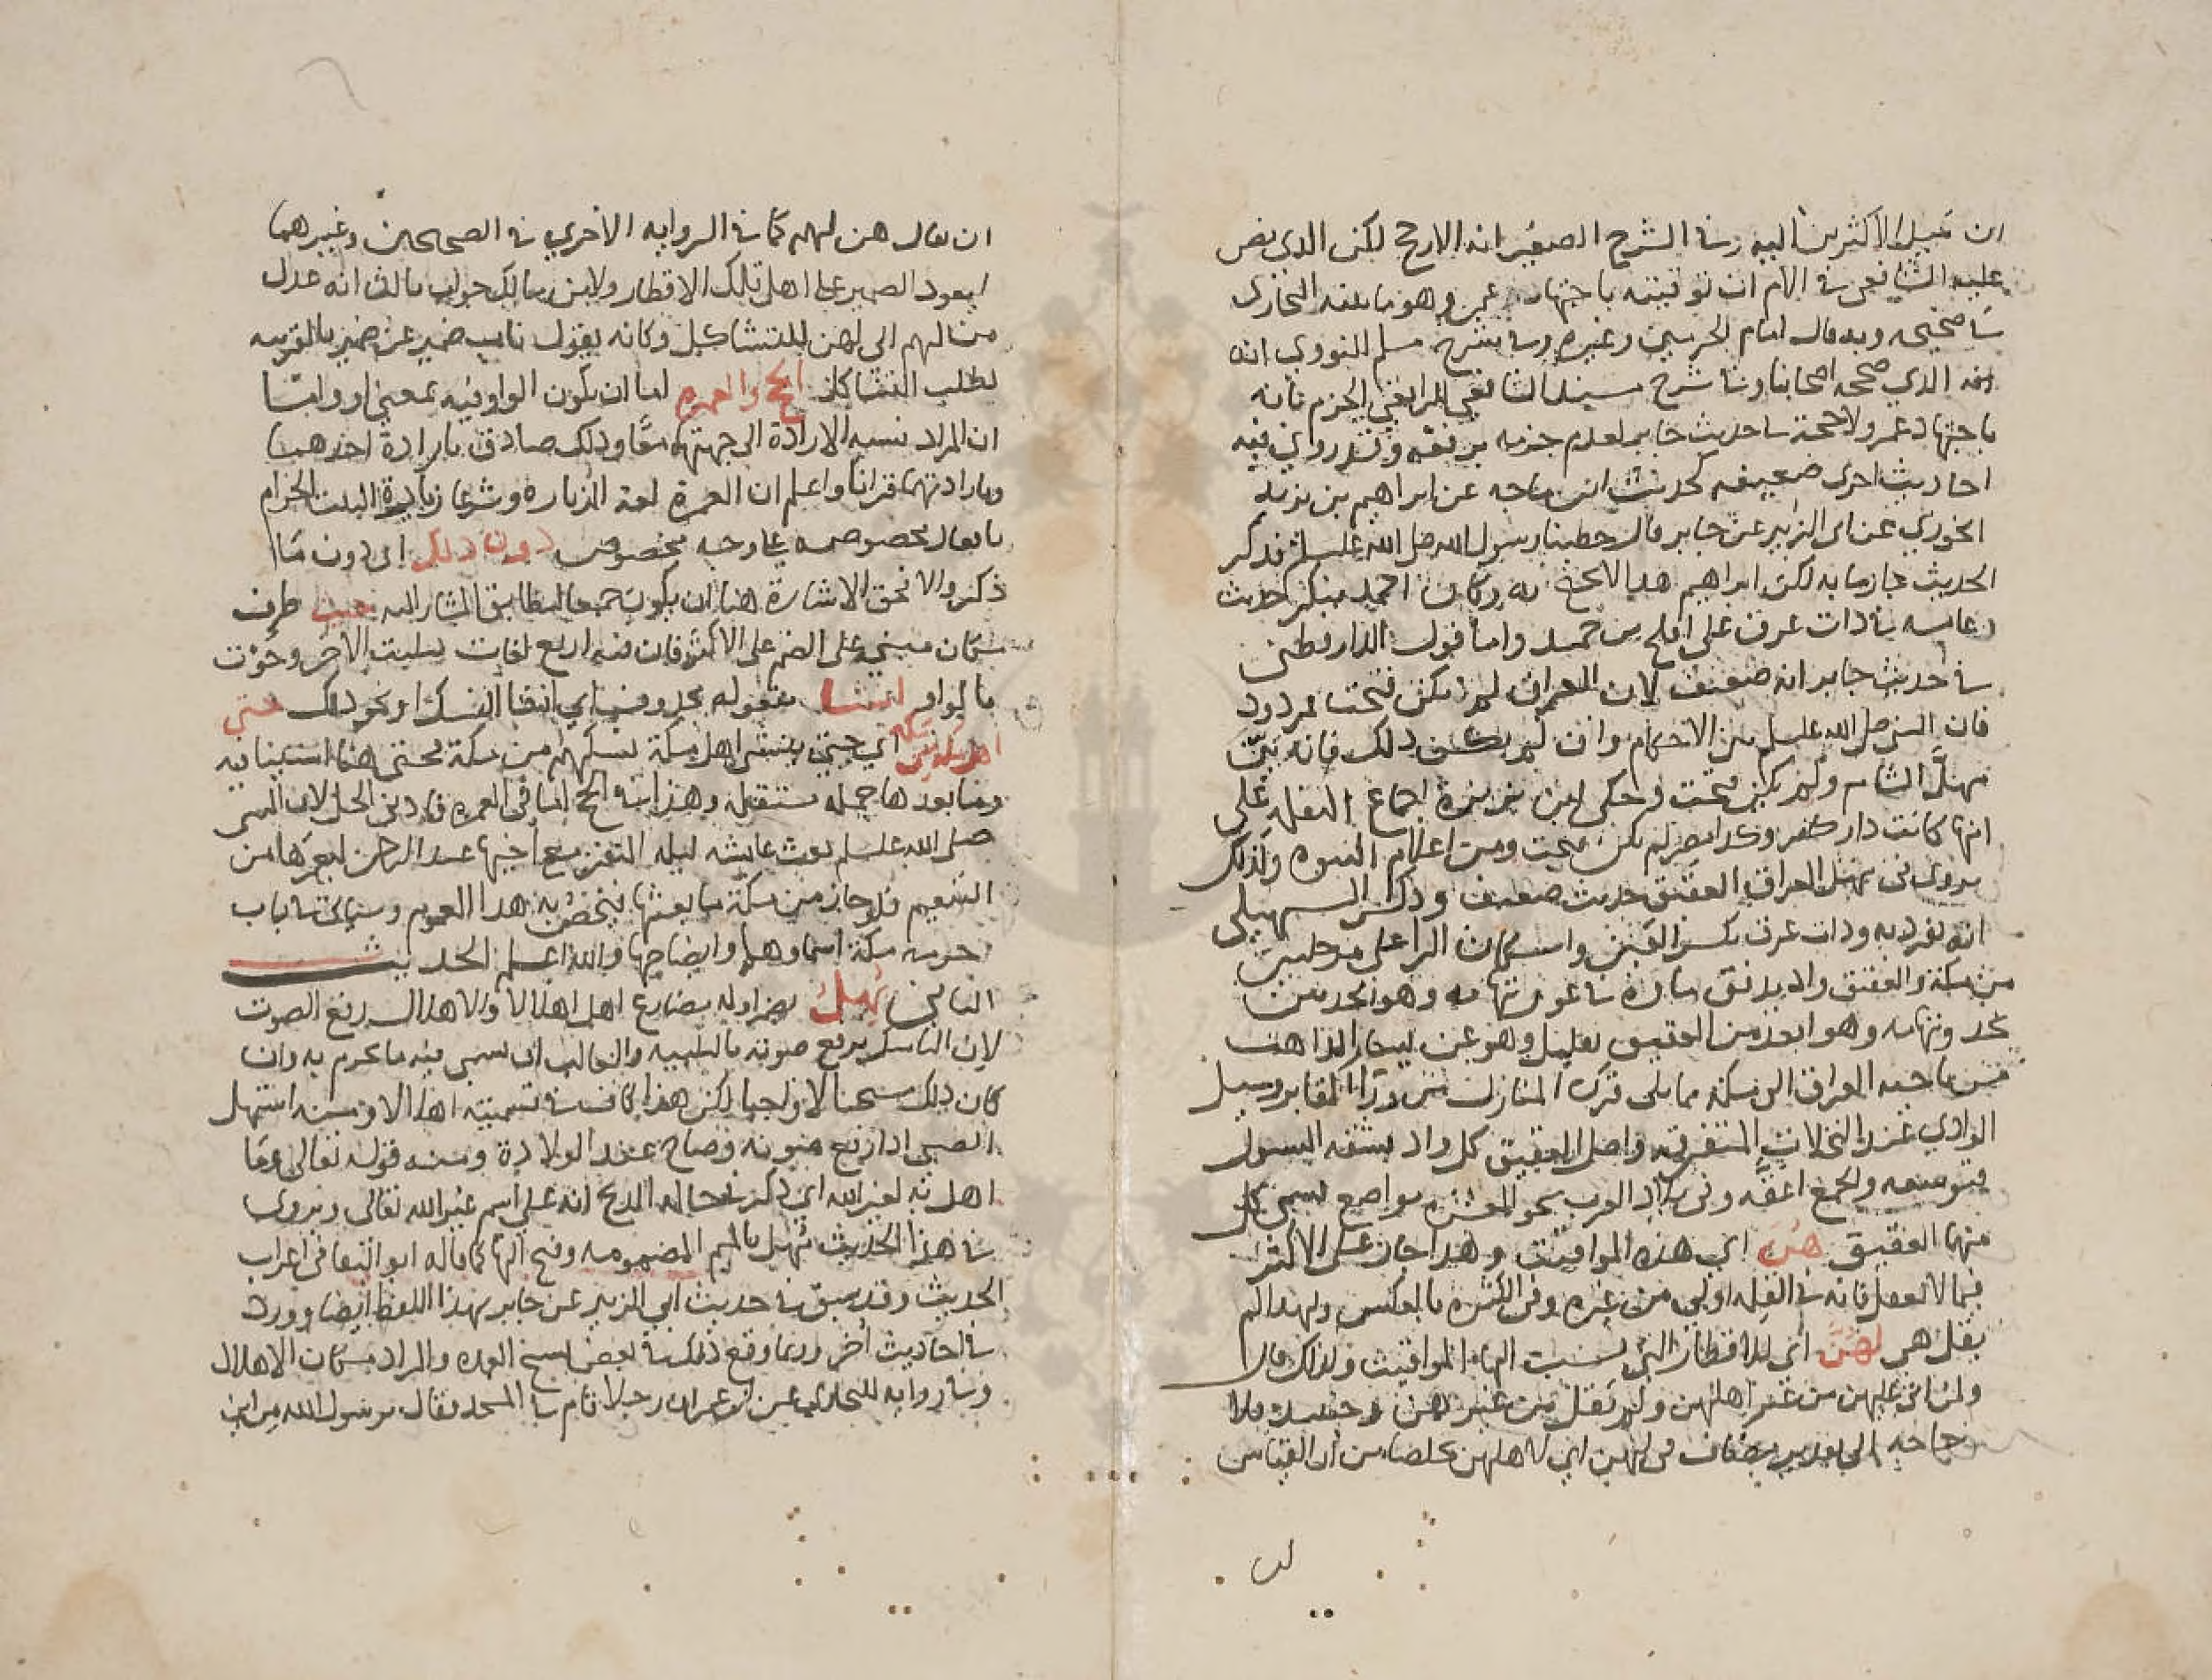 ان ميل الاكثرين اليه وفي الشرح الصغير انه الارجح لكن الذي نص
عليه الشافعي في الام ان توقيته باجتهاد عمر وهو ما يقتضيه البخاري
في صحيحه وبه قال امام الحرمين وغيره وفي شرح مسلم للنووي انه
انه الذي صححه اصحابنا وفي شرح مسند الشافعي للرافعي الجزم بانه
باجتهاد عمر ولا حجة في حديث جابر لعدم جزمه برفعه وقد روي فيه
احاديث اخرى ضعيفه كحديث ابن ماجه عن ابراهيم بن يزيد
الخوزي عن ابي الزبير عن جابر قال خطبنا رسول الله صلى الله عليه وسلم فذكر
الحديث جازما به لكن ابراهيم هذا لا يحتج به وكان احمد ينكر حديث
عايشه في ذات عرق على افلح بن حميد واما قول الدارقطني
في حديث جابر انه ضعيف لان العراق لم تكن فتحت فمردود
فان النبي صلى الله عليه وسلم بين الاحكام وان لم يكن ذلك فانه بين
مهل الشام ولم يكن فتحت وحكى ابن بزيزة اجماع النقله على
انها كانت دار كفر وكذا مصر لم تكن فتحت ومن اعلام النبوه ولذلك
يروى في مهل العراق العقيق حديث ضعيف وذكر السهيلي
انه تفرد به وذات عرق بكسر العين واسكان الرا على مرحلتين
من مكة والعقيق واد يدفق ماوه في غوري تهامه وهو الحد بين
نجد وتهامه وهو ابعد من العقيق بقليل وهو عن يسار الذاهب
من ناحيه العراق الى مكة مما يلي قرن المنازل من ورا المقابر وسيل
الوادي عند النخلات المتفرقه واصل العقيق كل واد يشقه السيول
فتوسعه والجمع اعقه وفي بلاد العرب نحو العشره مواضع تسمى كل
منها العقيق هن اي هذه المواقيت وهذا جاز على الاكثر
فيما لا يعقل فانه في القله اولى من غيره وفي الكثره بالعكس ولهذا لم
يقل هي لهن اي للاقطار التي نسبت اليها المواقيت ولذلك قال
ولمن اتى عليهن من غير اهلهن ولم يقل من غيرهن وحينئذ فلا
حاجه الى تقدير مضاف في لهن اي لاهلهن تخلصا من ان القياس
ان يقال هن لهم كما في الروايه الاخرى في الصحيحين وغيرهما
ليعود الضمير على اهل تلك الاقطار ولابن مالك جواب ثالث انه عدل
من لهم الى لهن للتشاكل وكانه يقول ناب ضمير عن ضمير بالقرينه
لطلب التشاكل الحج والعمره اما ان يكون الواو فيه بمعنى او واما
ان المراد نسبه الارادة الى جهتهما معا وذلك صادق بارادة احدهما
وبارادتهما قرانا واعلم ان العمرة لغة الزياره وشرعا زيارة البيت الحرام
بافعال مخصوصه على وجه مخصوص دون ذلك اي دون ما
ذكر والا فحق الاشارة هنا ان يكون جمعا ليطابق المشار اليه حيث ظرف
مكان مبني على الضم على الاكثر فان فيه اربع لغات تثليث الاخر وحوث
بالواو انشا مفعوله محذوف اي انشا النسك او نحو ذلك حتى
اهل مكة من مكة اي حتى ينشى اهل مكة نسكهم من مكة فحتى هنا استينافيه
وما بعدها جمله مستقله وهذا في الحج اما في العمره فادنى الحل لان النبي
صلى الله عليه وسلم بعث عايشه ليله النفر مع اخيها عبد الرحمن ليعمرها من
التنعيم فلو جاز من مكة ما بعثها فيخص به هذا العموم وسياتي في باب
حرمه مكة اسماوها وايضاحها والله اعلم الحديث
الثاني يهل بضم اوله مضارع اهل اهلالا والاهلال رفع الصوت
لان الناسك يرفع صوته بالتلبيه والغالب ان يسمى فيه ما يحرم به وان
كان ذلك مستحبا لا واجبا لكن هذا كاف في تسميته اهلالا ومنه استهل
الصبي اذا رفع صوته وصاح عند الولادة ومنه قوله تعالى وما
اهل به لغير الله اي ذكر فحاله الذبح انه على اسم غير الله تعالى ويروى
في هذا الحديث مهل بالميم المضمومه وفتح الها كما قاله ابو البقا في اعراب
الحديث وقد سبق في حديث ابي الزبير عن جابر بهذا اللفظ ايضا وورد
في احاديث اخر وربما وقع ذلك في بعض نسخ العمده والمراد مكان الاهلال
وفي روايه للبخاري عن ابن عمر ان رجلا قام في المسجد فقال يرسول الله من اين